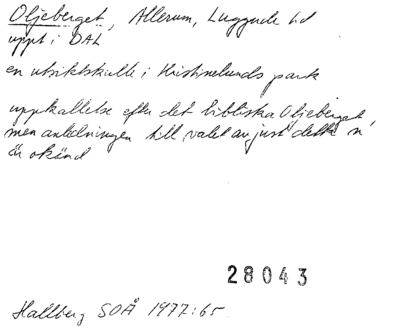 Oljeberget, Allerum, Luggude hd
uppt i DAL
en utsiktskulle i Kristinelunds park
uppkallelse efter det bibliska Oljeberget,
men anledningen till valet av just detta n
är okänd
28043
Hallberg SOÅ 1977:65